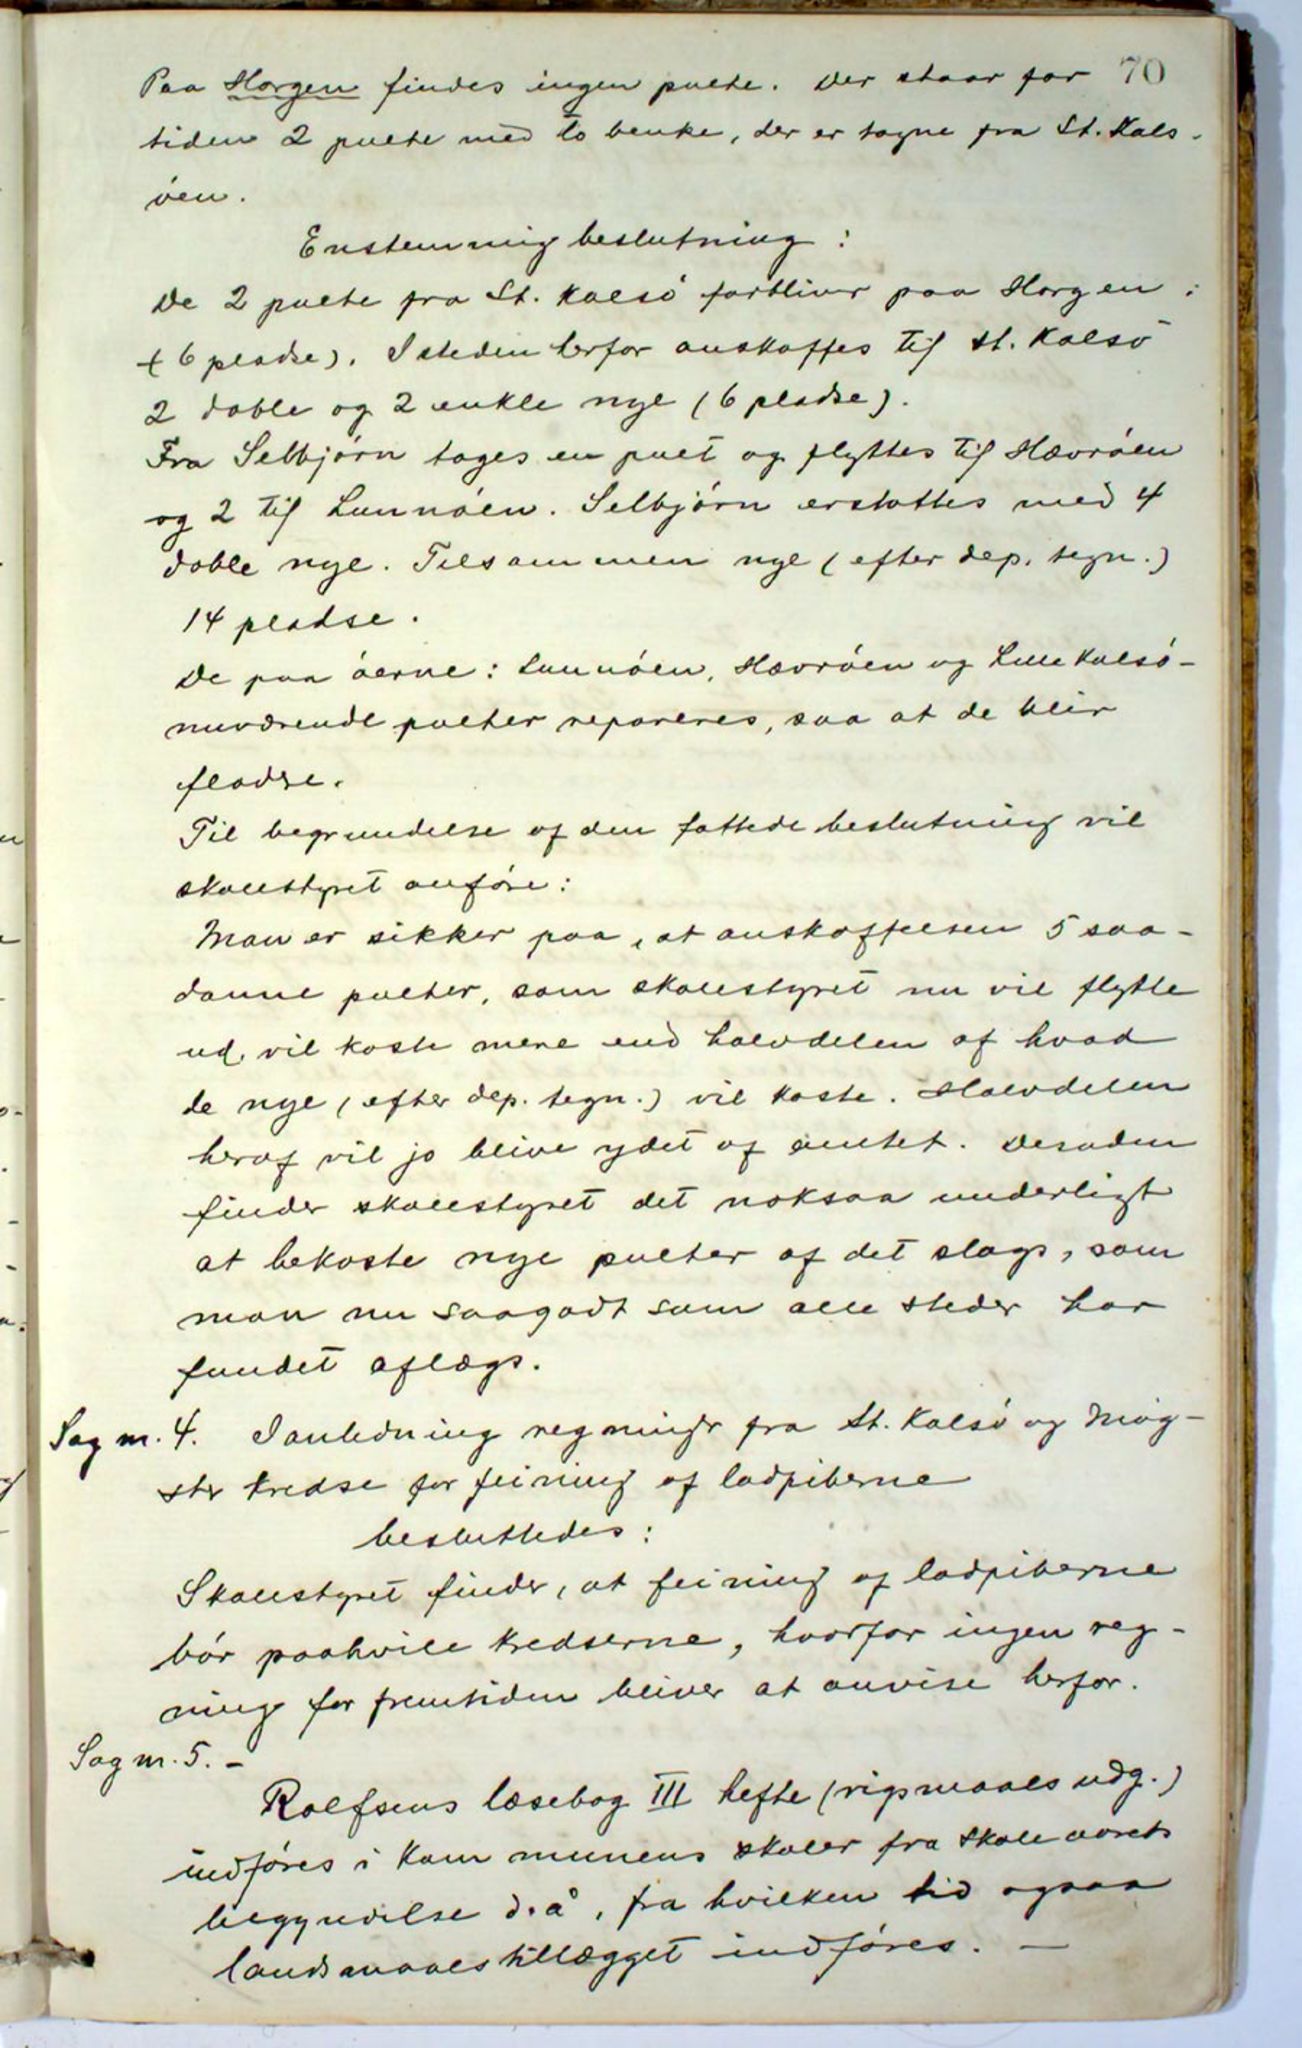 70
Paa Horgen findes ingen pulte. Der staar for
tiden 2 pulte med to benke, der er tagne fra St. Kals-
öen.
Enstemmig beslutning:
De 2 pulte fra St. Kalsö forbliver paa Horgen:
(6 pladse). Isteden herfor anskaffes til St. Kalsö
2 doble og 2 enkle nye (6 pladse).
Fra Selbjörn tages en pult og flyttes til Hævröen
og 2 til Lunnöen. Selbjörn erstattes med 4
doble nye. Tilsammen nye (efter dep. tegn.)
14 pladse.
De paa öerne: Lunnöen, Hævröen og Lille Kalsö-
nuværende pulter repareres, saa at de blir
fladse.
Til begrundelse af den fattede beslutning vil
skolestyret anföre:
Man er sikker paa, at anskaffelsen 5 saa-
danne pulter, som skolestyret nu vil flytte
ud, vil koste mere end halvdelen af hvad
de nye (efter dep. tegn.) vil koste. Halvdelen
heraf vil jo blive ydet af amtet. Desuden
finder skolestyret det noksaa underligt
at bekoste nye pulter af det slags, som
man nu saagodt som alle steder har
fundet aflægs.
Sag nr. 4. Ianledning regninger fra St. Kalsö og Mög-
ster kredse for feining af ladpiberne
besluttedes:
Skolestyret finder, at feining af ladpiberne
bör paahvile kredserne, hvorfor ingen reg-
ning for fremtiden bliver at anvise herfor.
Sag nr. 5. -
Rolfsens læsebog III hefte (rigsmaals udg.)
indföres i kommunens skoler fra skoleaarets
begyndelse d. å, fra hvilken tid ogsaa
landsmaalstillægget indföres. -